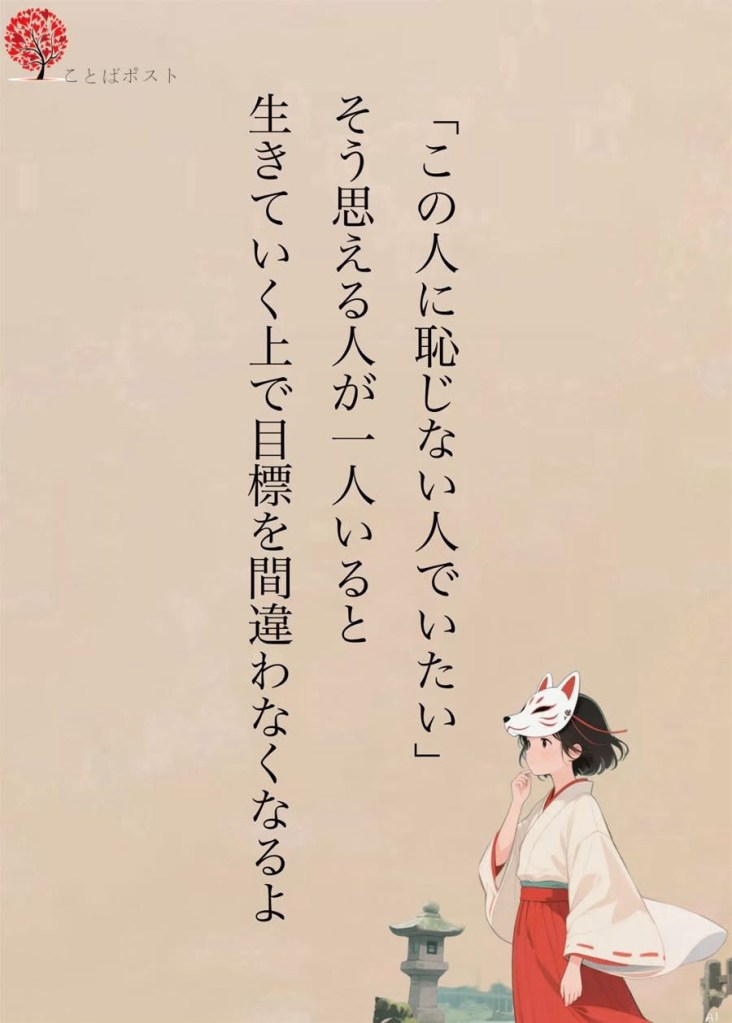 ことばポスト
「この人に恥じない人でいたい」
そう思える人が一人いると
生きていく上で目標を間違わなくなるよ
AI